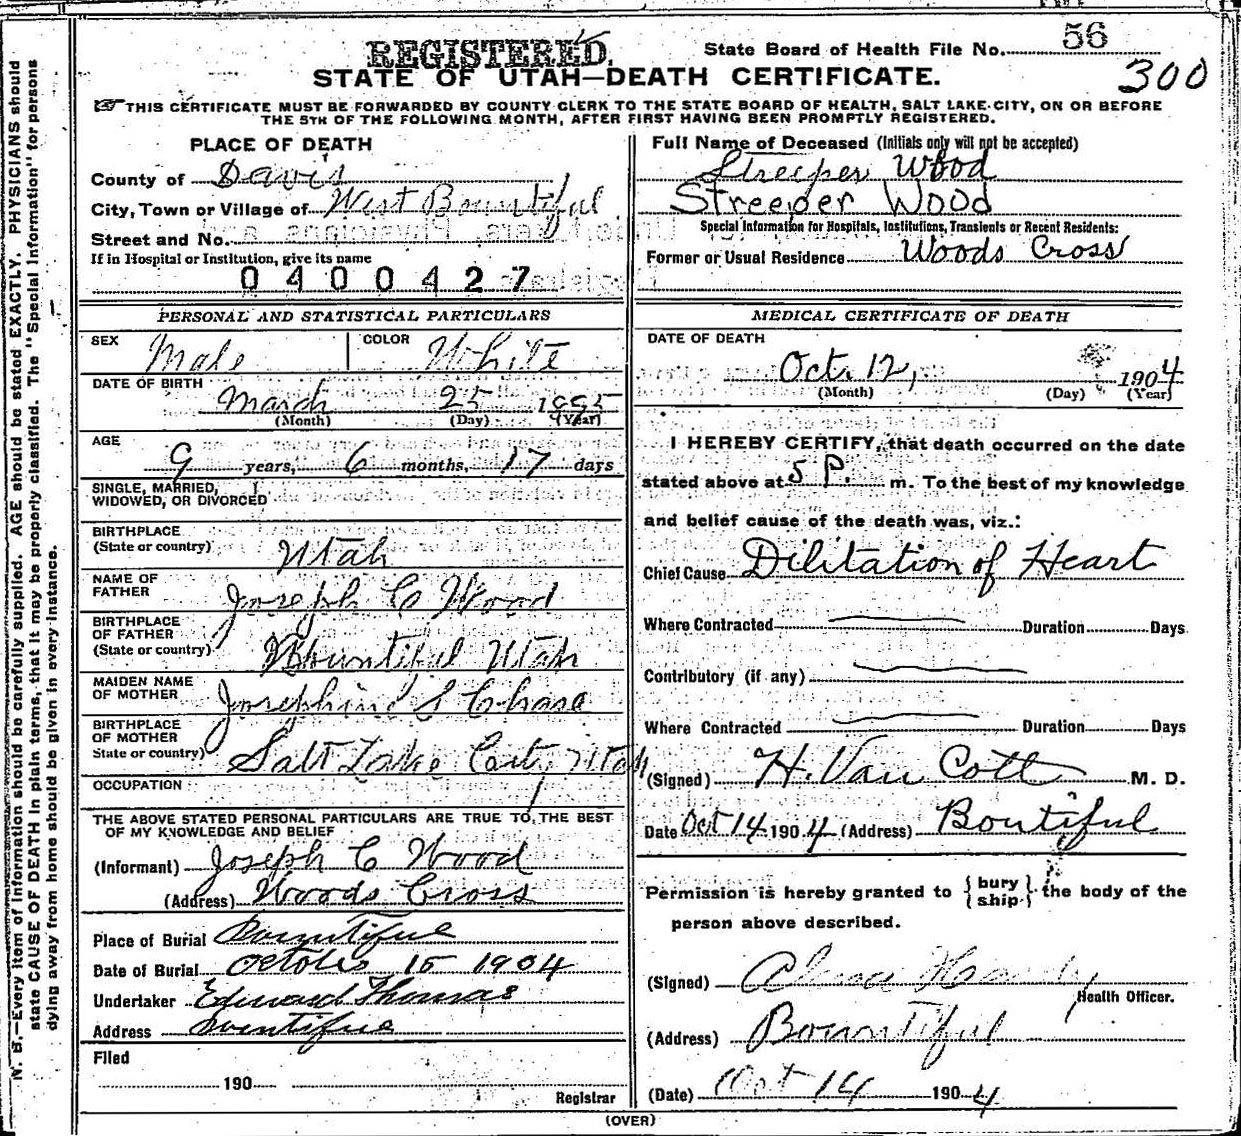 REGISTERED.
State Board of Health File No. 56
STATE OF UTAH—DEATH CERTIFICATE.
300
THIS CERTIFICATE MUST BE FORWARDED BY COUNTY CLERK TO THE STATE BOARD OF HEALTH, SALT LAKE CITY, ON OR BEFORE
THE 5TH OF THE FOLLOWING MONTH, AFTER FIRST HAVING BEEN PROMPTLY REGISTERED.
N. B.—Every item of information should be carefully supplied. AGE should be stated EXACTLY. PHYSICIANS should
state CAUSE OF DEATH in plain terms, that it may be properly classified. The "Special Information" for persons
dying away from home should be given in every instance.
PLACE OF DEATH
County of Davis
City, Town or Village of West Bountiful
Street and No.
If in Hospital or Institution, give its name
0400427
PERSONAL AND STATISTICAL PARTICULARS
SEX Male COLOR White
DATE OF BIRTH
March 25 1895
(Month) (Day) (Year)
AGE
9 years, 6 months, 17 days
SINGLE, MARRIED,
WIDOWED, OR DIVORCED
BIRTHPLACE
(State or country) Utah
NAME OF
FATHER Joseph C Wood
BIRTHPLACE
OF FATHER
(State or country) Bountiful Utah
MAIDEN NAME
OF MOTHER Josephine S Chase
BIRTHPLACE
OF MOTHER
State or country) Salt Lake City Utah
OCCUPATION
THE ABOVE STATED PERSONAL PARTICULARS ARE TRUE TO THE BEST
OF MY KNOWLEDGE AND BELIEF
(Informant) Joseph C Wood
(Address) Woods Cross
Place of Burial Bountiful
Date of Burial October 15 1904
Undertaker Edward Thomas
Address Bountiful
Filed
190
Registrar
Full Name of Deceased (Initials only will not be accepted)
Streeper Wood
Streeper Wood
Special Information for Hospitals, Institutions, Transients or Recent Residents:
Former or Usual Residence Woods Cross
MEDICAL CERTIFICATE OF DEATH
DATE OF DEATH
Oct. 12, 1904
(Month) (Day) (Year)
I HEREBY CERTIFY, that death occurred on the date
stated above at 5 P. m. To the best of my knowledge
and belief cause of the death was, viz.:
Chief Cause Dilitation of Heart
Where Contracted Duration Days
Contributory (if any)
Where Contracted Duration Days
(Signed) H. Van Cott M. D.
Date Oct 14 1904 (Address) Bontiful
Permission is hereby granted to {bury
ship} the body of the
person above described.
(Signed)
Health Officer.
(Address) Bountiful
(Date) Oct 14 1904
(OVER)